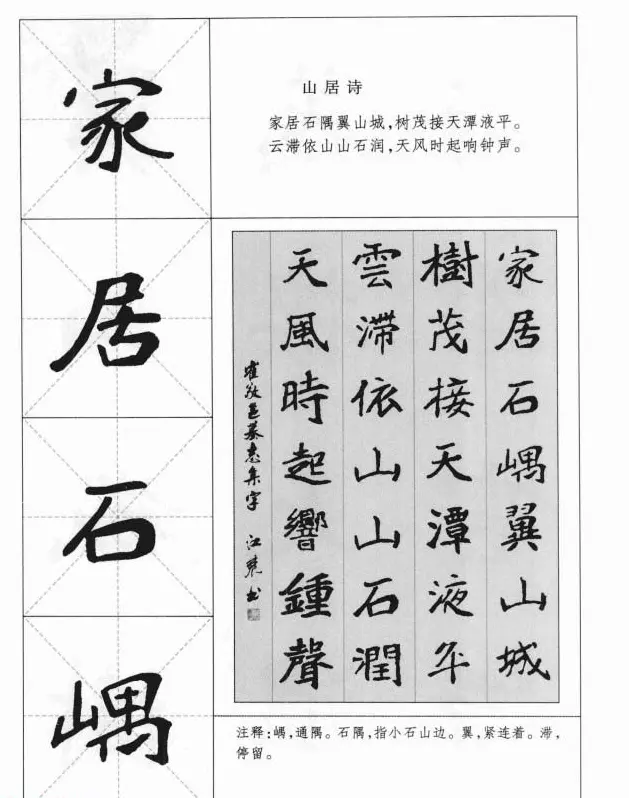 家
居
石
嵎
山居诗
家居石隅翼山城，树茂接天潭液平。
云滞依山山石润，天风时起响钟声。
家居石嵎翼山城
樹茂接天潭液平
雲滞依山山石潤
天風時起響鍾聲
崔敬邕墓志集字
注释：嵎，通隅。石隅，指小石山边。翼，紧连着。滞，
停留。